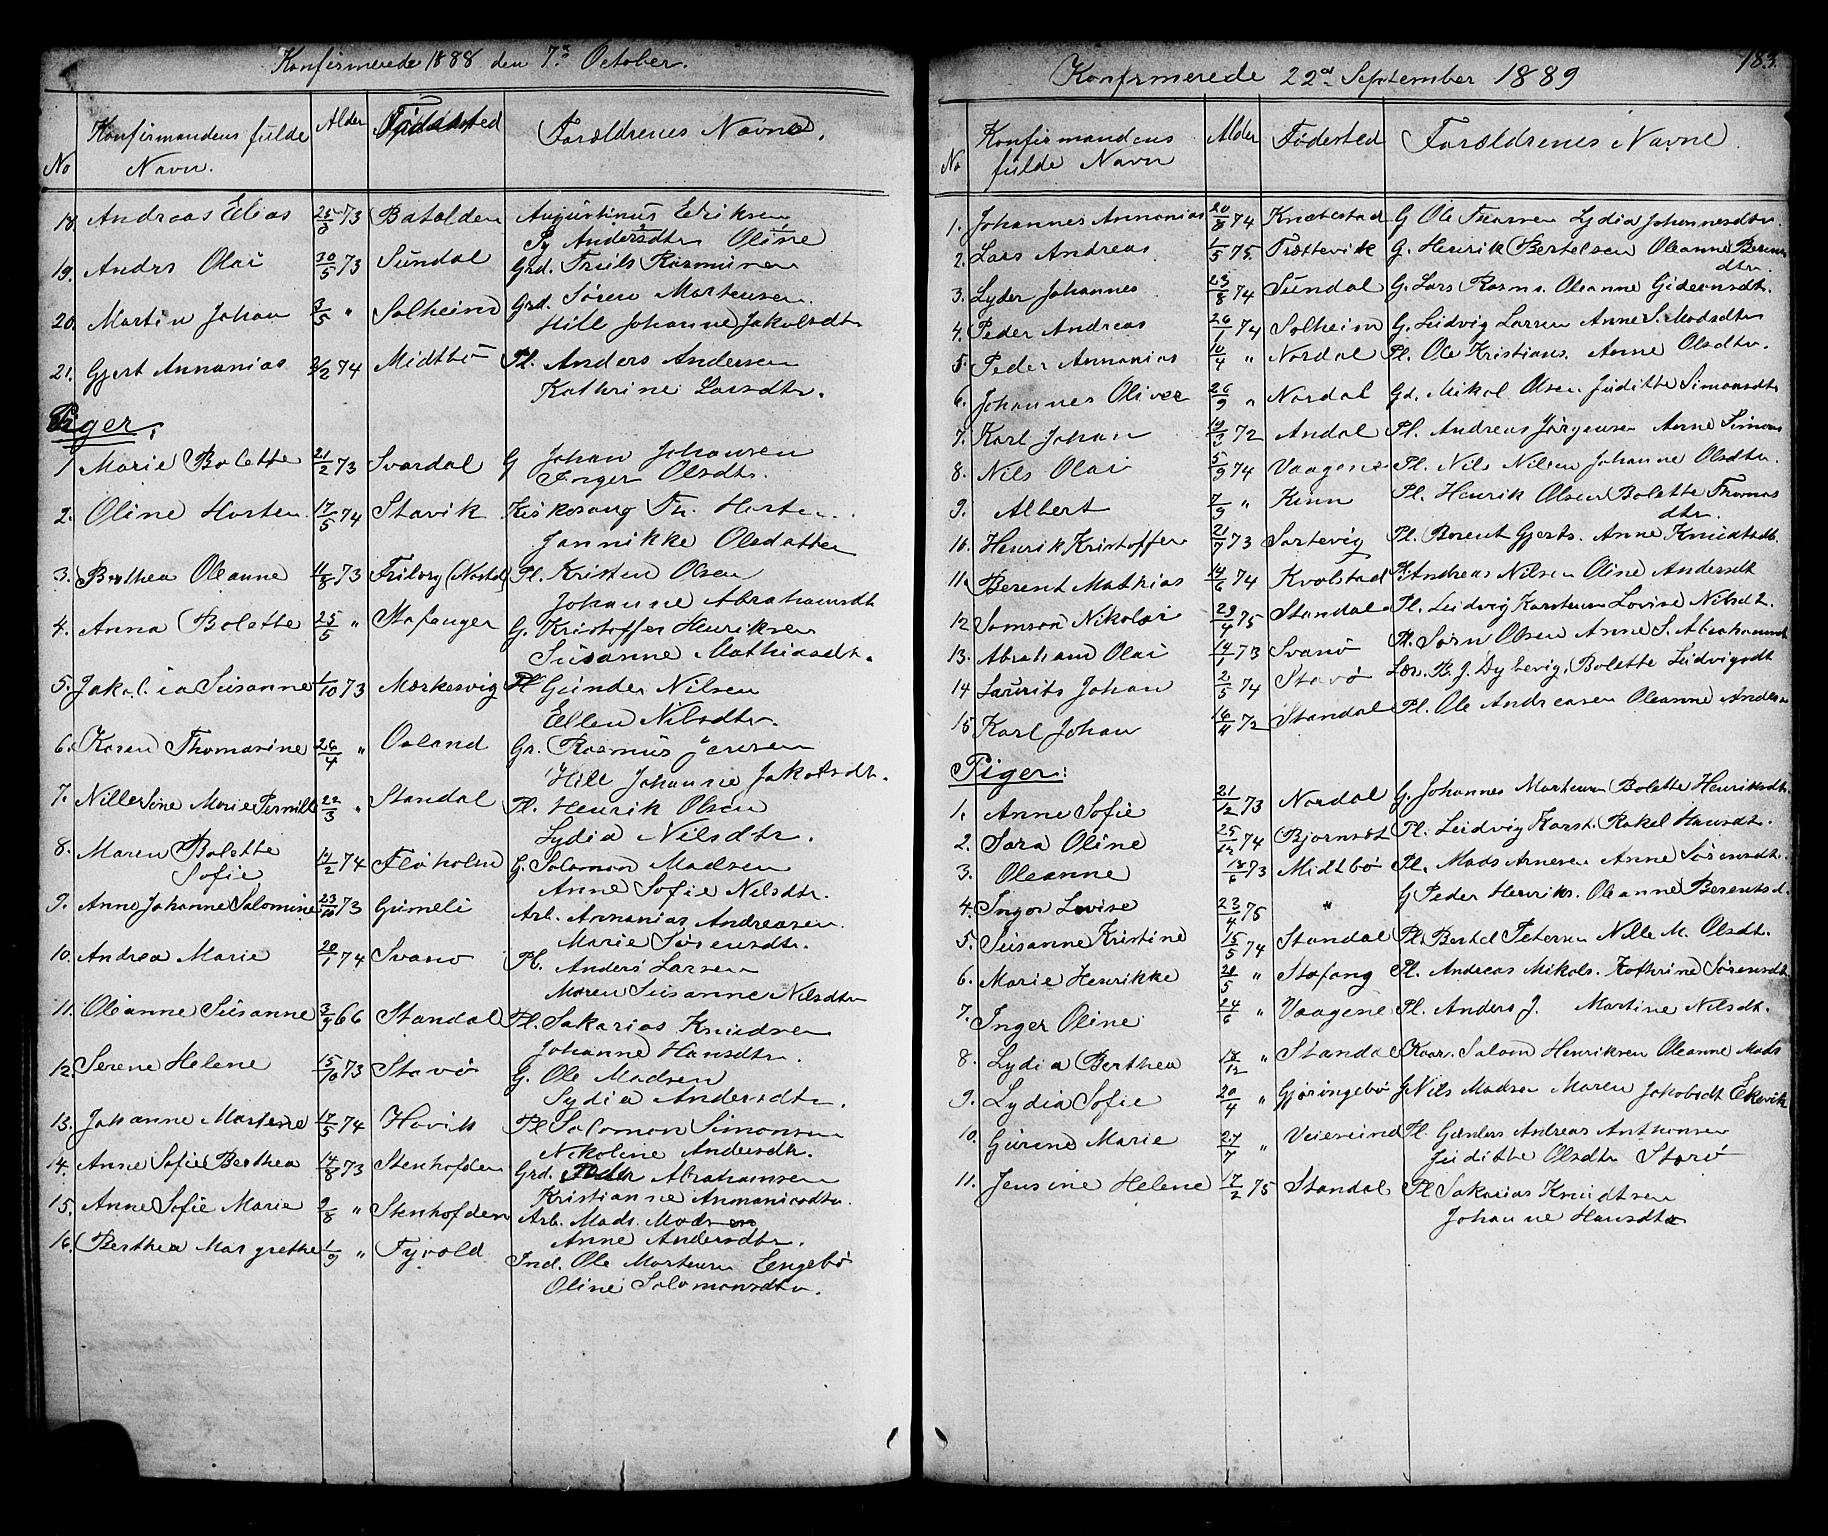 Konfirmerede 1888 den 7de October.
No Konfirmandens fulde Navn. Alder Fødested Forældrenes Navne.
18. Andreas Elias 25/3 73 Batalden Augustinus Eriksen
Andersdtr Oline
19. Andrs Olai 30/5 73 Sundal Grd. Truls Rasmusen
20. Martin Johan 3/5 " Solheim Grd. Søren Martensen.
Hill Johanne Jakobsdtr
21. Gjert Annanias 2/2 74 Midtbö Pl. Anders Andersen
Kathrine Larsdtr.
Piger.
1. Marie Bolette 21/2 73 Svardal G Johan Johansen
Inger Olsdtr.
2. Oline Horten 17/5 74 Stavik Kirkesang Th. Horten.
Jannikke Olsdatter
3. Berthea Oleanne 11/8 73 Friborg (Nordal) Pl. Kristen Olsen
Johanne Abrahamsdtr
4. Anna Bolette 25/5 " Stafanger G. Kristoffer Henriksen
Susanne Mathiasdtr.
5. Jakobia Susanne 1/10 73 Markesvig Pl Gunder Nilsen
Ellen Nilsdtr.
6. Karen Thomasine 26/4 " Osland Gr. Rasmus Jensen
Hill Johanne Jakobsdtr.
7. Nille Sine Marie Pernille 22/3 " Standal Pl. Henrik Olsen
Lydia Nilsdtr.
8. Maren Bolette 14/2 74 Floholm G. Solomon Madsen
Sofie Anne Sofie Nilsdtr.
9. Anne Johanne Salomine 23/10 73 Gumeli Arb. Annanias Andreasen.
Marie Sørensdtr.
10. Andrea Marie 20/1 74 Svanø Pl. Anders Larsen
Maren Susanne Nilsdtr
11. Oleanne Susanne 3/9 66 Standal Pl. Sakarias Knudsen
Johanne Hansdtr.
12. Serene Helene 15/10 73 Stavø G. Ole Madsen
Lydia Andersdtr.
13. Johanne Martine 17/5 74 Hovik Pl Salomon Simonsen
Nikoline Andersdtr.
14. Anne Sofie Berthea 14/8 73 Stenhofden Grd. Peder Abrahamsen
Kristianne Annaniasdtr.
15. Anne Sofie Marie 9/8 " Stenhofden Arb. Mads. Madsen
Anne Andersdtr.
16. Berthea Margrethe 1/9 " Tyvold Ind. Ole Martensen Engebö
Oline Salomonsdtr.
183.
Konfirmerede 22de September 1889
No Konfirmandens fulde Navn Alder Fødested Forældrenes Navne.
1. Johannes Annanias 20/8 74 Knæbestad G Ole Thorsen Lydia Johannesdtr.
2. Lars Andreas 1/5 75. Trættevik G. Henrik Bertelsen Oleanne Berents
dtr.
3. Lyder Johannes 23/8 74 Sundal G. Lars Rasm. Oleanne Gideonsdtr.
4. Peder Andreas 26/1 74 Solheim G. Ludvig Larsen Anne S. Madsdtr
5. Peder Annanias 10/4 " Nordal Pl. Ole Kristians. Anne Olsdtr.
6. Johannes Oliver 26/9 " Nordal Gd. Mikal Olsen Juditte Simonsdtr
7. Karl Johan 19/3 72 Andal Pl. Andreas Jørgensen Anne Simons
8. Nils Olai 5/9 74 Vaagene Pl. Nils Nilsen Johanne Olsdtr.
9. Albert 7/9 " Kinn Pl. Henrik Olsen Bolette Thomas
dtr.
10. Henrik Kristoffer 21/9 73 Sortevig Pl. Berent Gjerts. Anne Knudsdtr.
11. Berent Mathias 14/6 74 Kvalstad Pl. Andreas Nilsen Oline Andersdt
12 Samson Nikolai 29/4 75 Standal Pl. Ludvig Karstensen Lovise Nilsdt.
13. Abraham Olai 14/1 73 Svanø Pl. Sørn Olsen Anne S. Abrahamsdt
14 Laurits Johan 2/5 74 Stavø Lær. B. J. Dybevig, Bolette Ludvigsdt
15 Karl Johan 16/11 72 Standal Pl. Ole Andreasen Oleanne Anders
Piger:
1. Anne Sofie 21/12 73 Nordal G. Johannes Martensen Bolette Henriksdtr
2. Sara Oline 25/12 74 Bjørnset Pl. Ludvig Karst. Rakel Hansdtr.
3. Oleanne 18/6 73 Midtbö Pl. Mads Arnesen Anne Sørensdtr.
4. Inger Lovise 23/4 75 " G Peder Henriks. Oleanne Berentsd.
5. Susanne Kristine 15/5 74 Standal Pl. Bertel Petersen Nille M. Olsdt.
6. Marie Henrikke 20/5 " Stafang Pl. Andreas Mikals. Kathrine Sørensdt
7. Inger Oline 24/6 " Vaagene Pl. Anders J. Martine Nilsdt.
8. Lydia Berthea 18/12 " Standal Kaar. Salom Henriksen Oleanne Mads
9. Lydia Sofie 20/4 " Gjøringebø G Nils Madsen Maren Jakobsdt Ekevik
10. Gurine Marie 27/7 " Veiesund Pl Andreas Anthonsen
Juditte Olsdtr Storø
11. Jensine Helene 17/2 75 Standal Pl Sakarias Knudtsen
Johanne Hansdtr